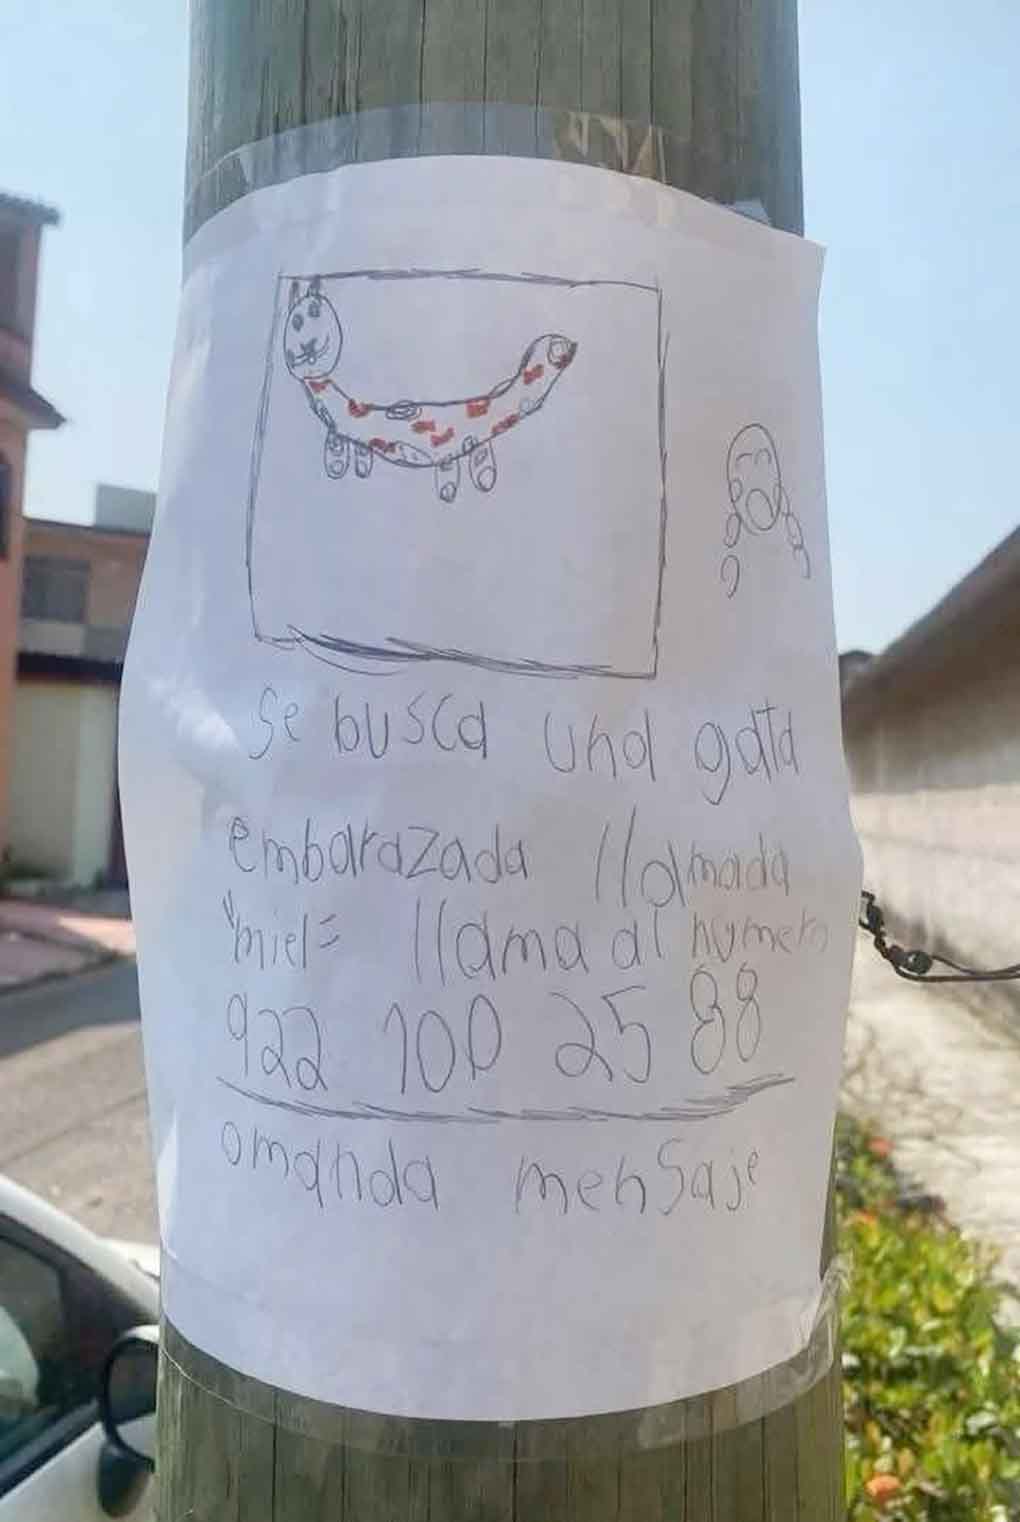 Se busca una gata
embarazada llamada
"miel" llama al numero
922 100 25 88
o manda mensaje